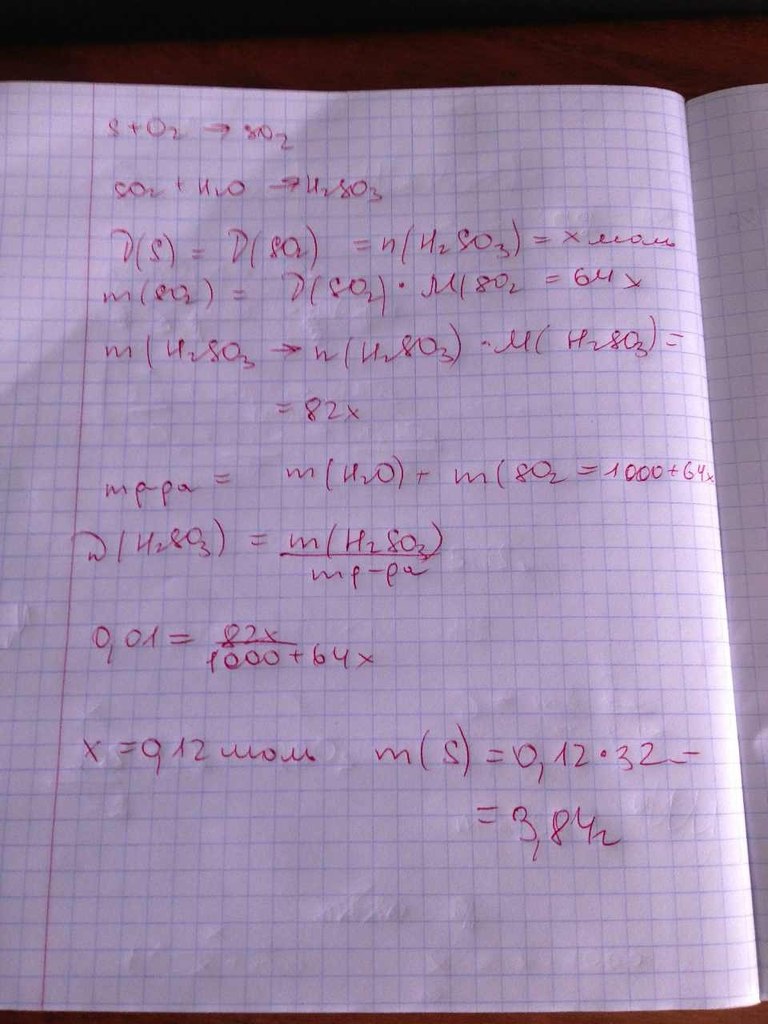 S + O₂ → SO₂
SO₂ + H₂O → H₂SO₃
D(S) = D(SO₂) = n(H₂SO₃) = x моль
m(SO₂) = D(SO₂) · M(SO₂ = 64x
m(H₂SO₃ → n(H₂SO₃) · M(H₂SO₃) =
= 82x
mр-ра = m(H₂O) + m(SO₂ = 1000 + 64x
W(H₂SO₃) = m(H₂SO₃)
mр-ра
0,01 = 82x
1000 + 64x
x = 0,12 моль m(S) = 0,12 · 32 =
= 3,84г